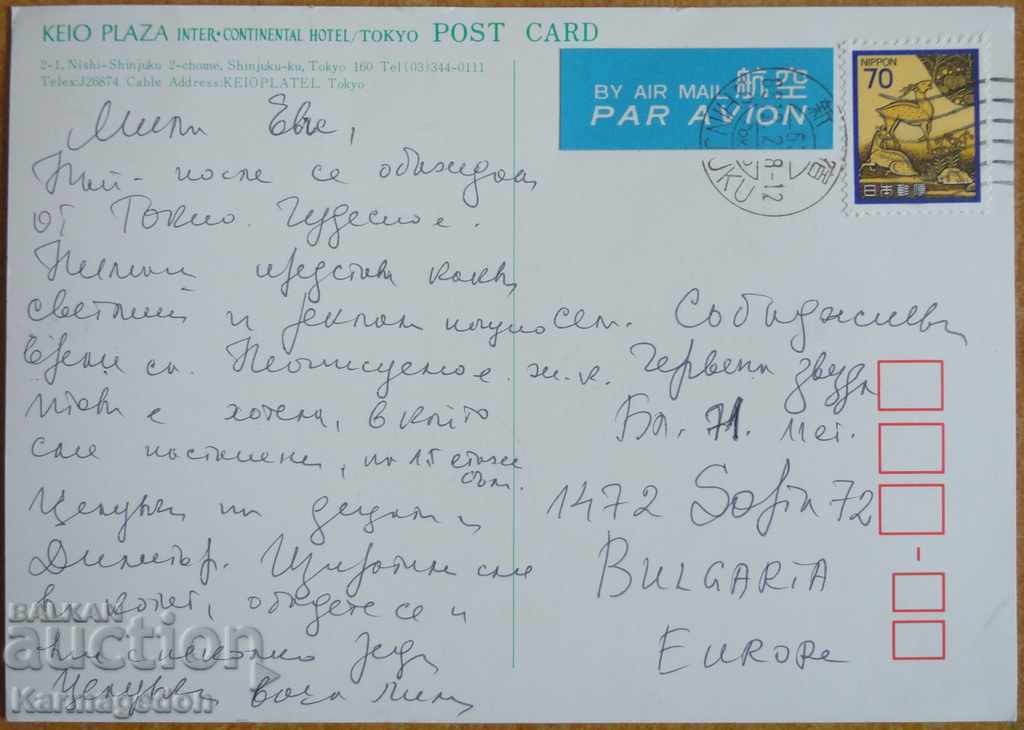 KEIO PLAZA INTER•CONTINENTAL HOTEL/TOKYO POST CARD
2-1, Nishi-Shinjuku 2-chome, Shinjuku-ku, Tokyo 160 Tel(03)344-0111
Telex:J26874 Cable Address:KEIOPLATEL Tokyo
BY AIR MAIL 航空
PAR AVION
NIPPON
70
日本郵便
新宿
8-12
Мили
Най-после се обаждам
от Токио. Чудесно е.
Нямаш представа какви
светлини и реклами нощно
време са. Неописуемо е.
хотела, в който
сме настанени, на 15 етаж
съм.
Целувки на децата и
Димитър.
обадете се и
ви с няколко реда
Целувки
сем. Събаджиеви
ж.к. Червена звезда
Бл. 71. 11 ет.
1472 Sofia 72
BULGARIA
EUROPE
BALKAN
auction
Karmagedon